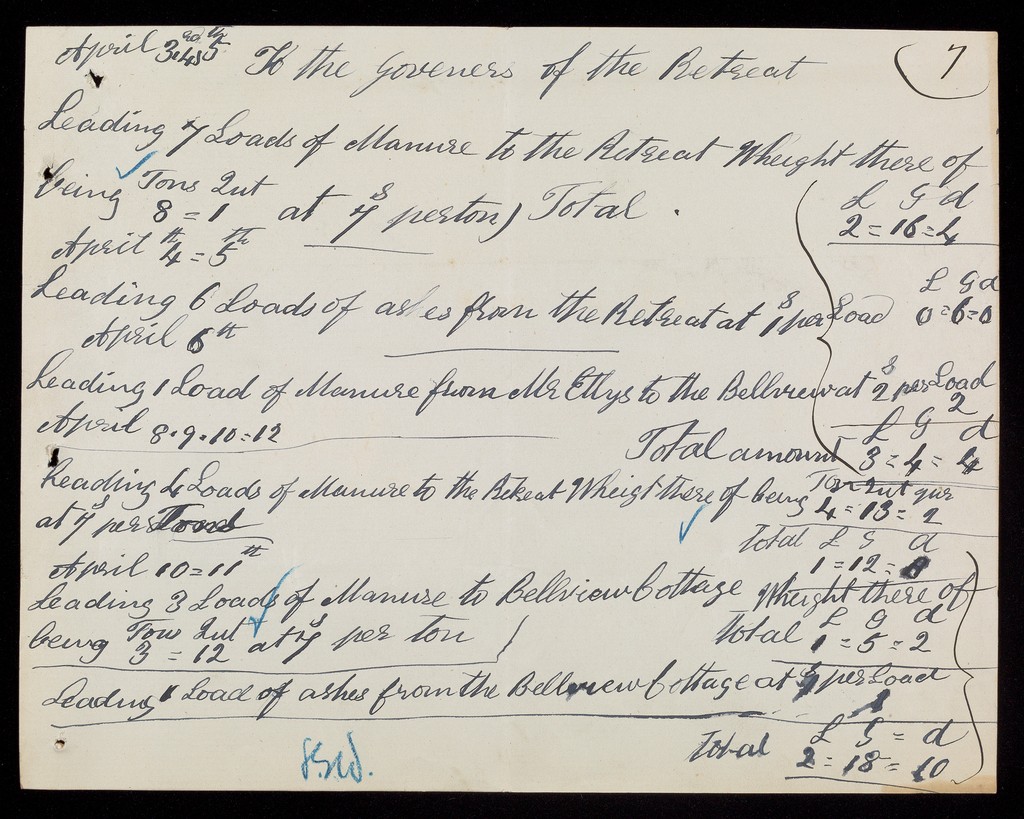 April 3rd 4 & 5th To the Goveners of the Retreat 7
Leading 7 Loads of Manure to the Retreat Wheight there of
being Tons 8 = Qut 1 at 7s per ton) Total . £ S d
2 = 16 = 4
April 4th = 5th
Leading 6 Loads of ashes from the Retreat at 1s per Load £ S d 0 = 6 = 0
April 6th
Leading 1 Load of Manure from Mr Ettys to the Bellview at 2s per Load
2
April 8.9.10=12
Total amount £ S d 3 = 4 = 4
Leading 4 Loads of Manure to the Retreat Wheight there of being Ton Qut qur 4 = 13 = 2
at 7s per Tond
Total £ S d
1 = 12 =
April 10=11th
Leading 3 Loads of Manure to Bellview Cottage Wheight there of
being Tons Qut 3 = 12 at 7s per ton Total £ S d 1 = 5 = 2
Leading 1 Load of ashes from the Bellview Cottage at per Load
1
Total £ S = d
2 = 18 = 10